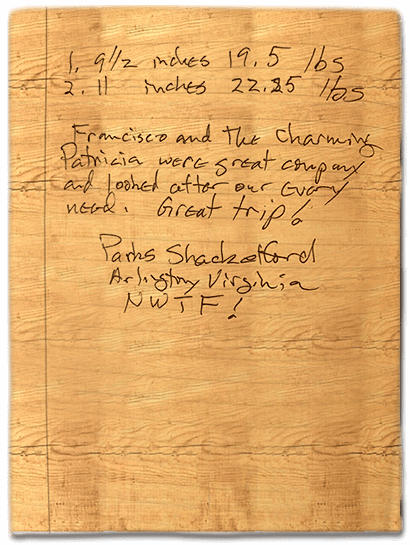 1. 9 1/2 inches 19.5 lbs
2. 11 inches 22.25 lbs
Francisco and the charming
Patricia were great company
and looked after our every
need. Great trip!
Parks Shackelford
Arlington, Virginia
NWTF!